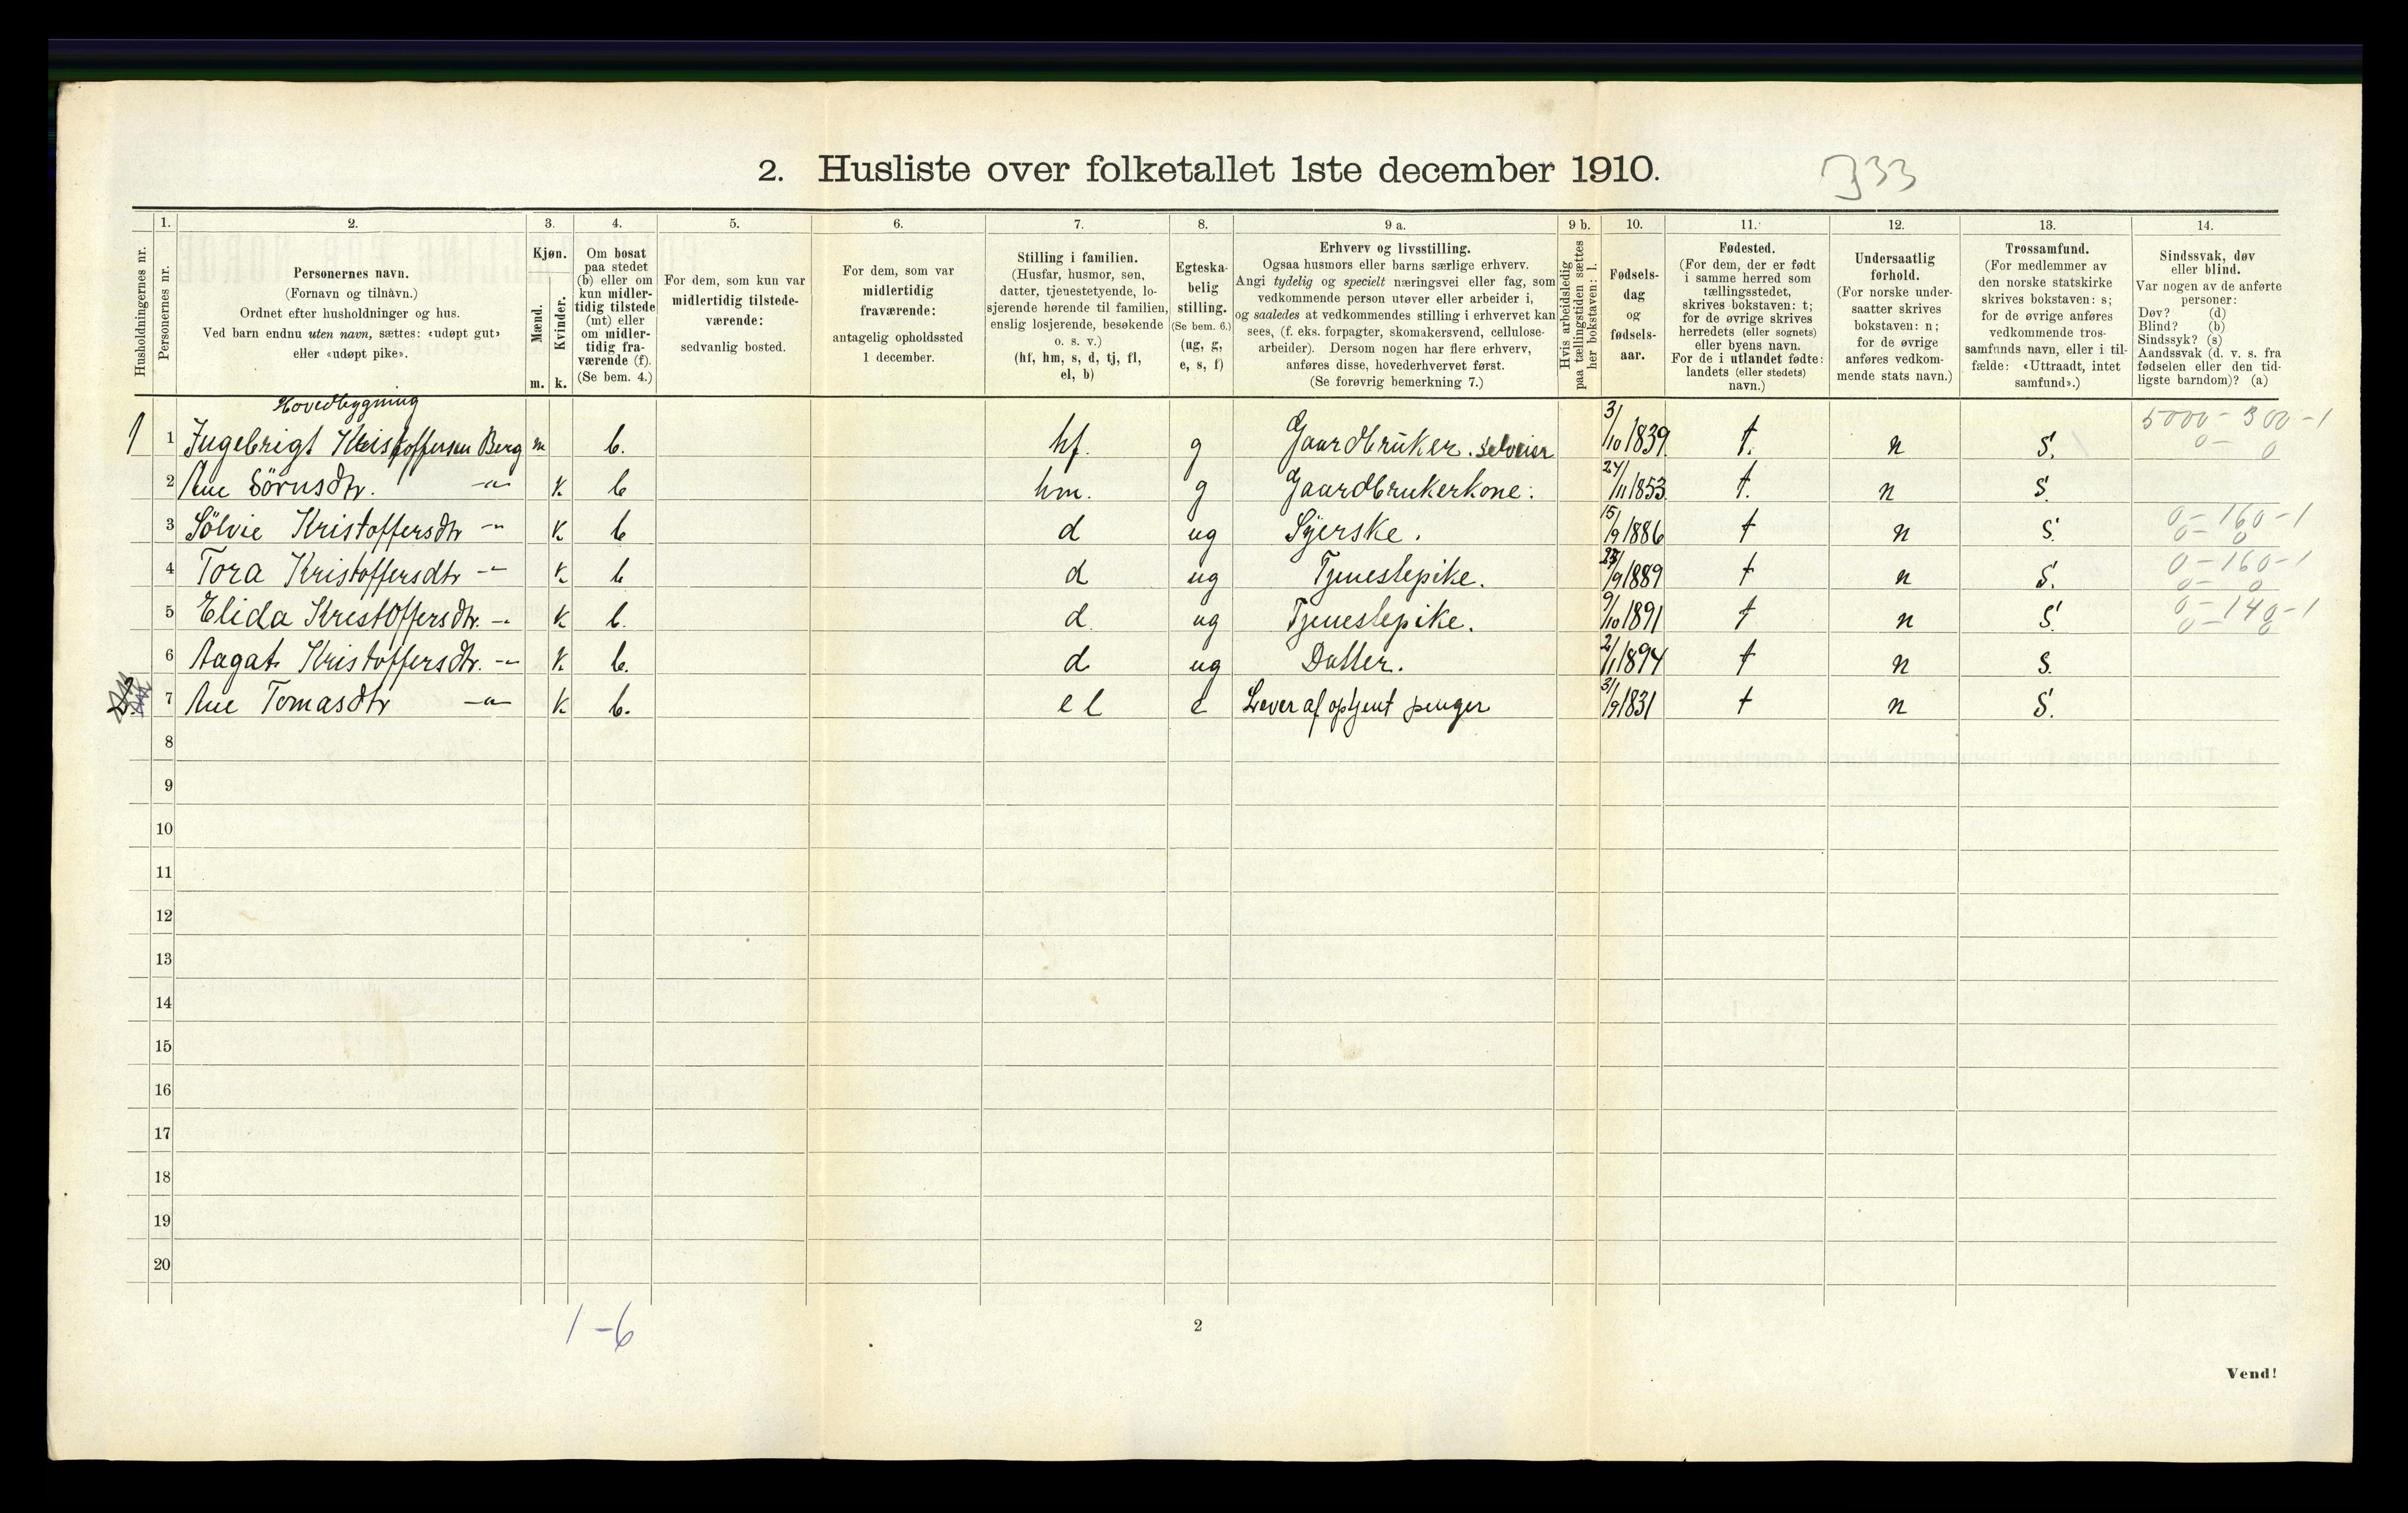 2. Husliste over folketallet 1ste december 1910.
333
Husholdningernes nr.
1.
Personernes nr.
2.
Personernes navn.
(Fornavn og tilnavn.)
Ordnet efter husholdninger og hus.
Ved barn endnu uten navn, sættes: «udøpt gut»
eller «udøpt pike».
3.
Kjøn.
Mænd.
Kvinder.
m. k.
4.
Om bosat
paa stedet
(b) eller om
kun midler-
tidig tilstede
(mt) eller
om midler-
tidig fra-
værende (f).
(Se bem. 4.)
5.
For dem, som kun var
midlertidig tilstede-
værende:
sedvanlig bosted.
6.
For dem, som var
midlertidig
fraværende:
antagelig opholdssted
1 december.
7.
Stilling i familien.
(Husfar, husmor, søn,
datter, tjenestetyende, lo-
sjerende hørende til familien,
enslig losjerende, besøkende
o. s. v.)
(hf, hm, s, d, tj, fl,
el, b)
8.
Egteska-
belig
stilling.
(Se bem. 6.)
(ug, g,
e, s, f)
9 a.
Erhverv og livsstilling.
Ogsaa husmors eller barns særlige erhverv.
Angi tydelig og specielt næringsvei eller fag, som
vedkommende person utøver eller arbeider i,
og saaledes at vedkommendes stilling i erhvervet kan
sees, (f. eks. forpagter, skomakersvend, cellulose-
arbeider). Dersom nogen har flere erhverv,
anføres disse, hovederhvervet først.
(Se forøvrig bemerkning 7.)
9 b.
Hvis arbeidsledig
paa tællingstiden sættes
her bokstaven: l.
10.
Fødsels-
dag
og
fødsels-
aar.
11.
Fødested.
(For dem, der er født
i samme herred som
tællingsstedet,
skrives bokstaven: t;
for de øvrige skrives
herredets (eller sognets)
eller byens navn.
For de i utlandet fødte:
landets (eller stedets)
navn.)
12.
Undersaatlig
forhold.
(For norske under-
saatter skrives
bokstaven: n;
for de øvrige
anføres vedkom-
mende stats navn.)
13.
Trossamfund.
(For medlemmer av
den norske statskirke
skrives bokstaven: s;
for de øvrige anføres
vedkommende tros-
samfunds navn, eller i til-
fælde: «Uttraadt, intet
samfund».)
14.
Sindssvak, døv
eller blind.
Var nogen av de anførte
personer:
Døv? (d)
Blind? (b)
Sindssyk? (s)
Aandssvak (d. v. s. fra
fødselen eller den tid-
ligste barndom)? (a)
Hovedbygning
1 1 Ingebrigt Kristoffersen Berg m b. hf. g Gaardbruker. selveier 3/10 1839. t. n S. 5000 - 300 - 1
0 - 0
2 Ane Sörnsdtr. -"- k b hm. g Gaardbrukerkone. 24/11 1853. t. n S.
3 Sölvie Kristoffersdtr -"- k b d ug Syerske. 15/9 1886 t n S. 0 - 160 - 1
0 - 0
4 Tora Kristoffersdtr -"- k b d ug Tjenestepike. 9 1889 t n S. 0 - 160 - 1
0 - 0
5 Elida Kristoffersdtr. -"- k b. d ug Tjenestepike. 9/10 1891 t n S. 0 - 140 - 1
0 - 0
6 Aagat Kristoffersdtr. -"- k b. d ug Datter. 2/11 1894 t n S.
7 Ane Tomasdtr -"- k b. el e Lever af optjent penger 31/9 1831 t n S.
8
9
10
11
12
13
14
15
16
17
18
19
20
1-6
2
Vend!